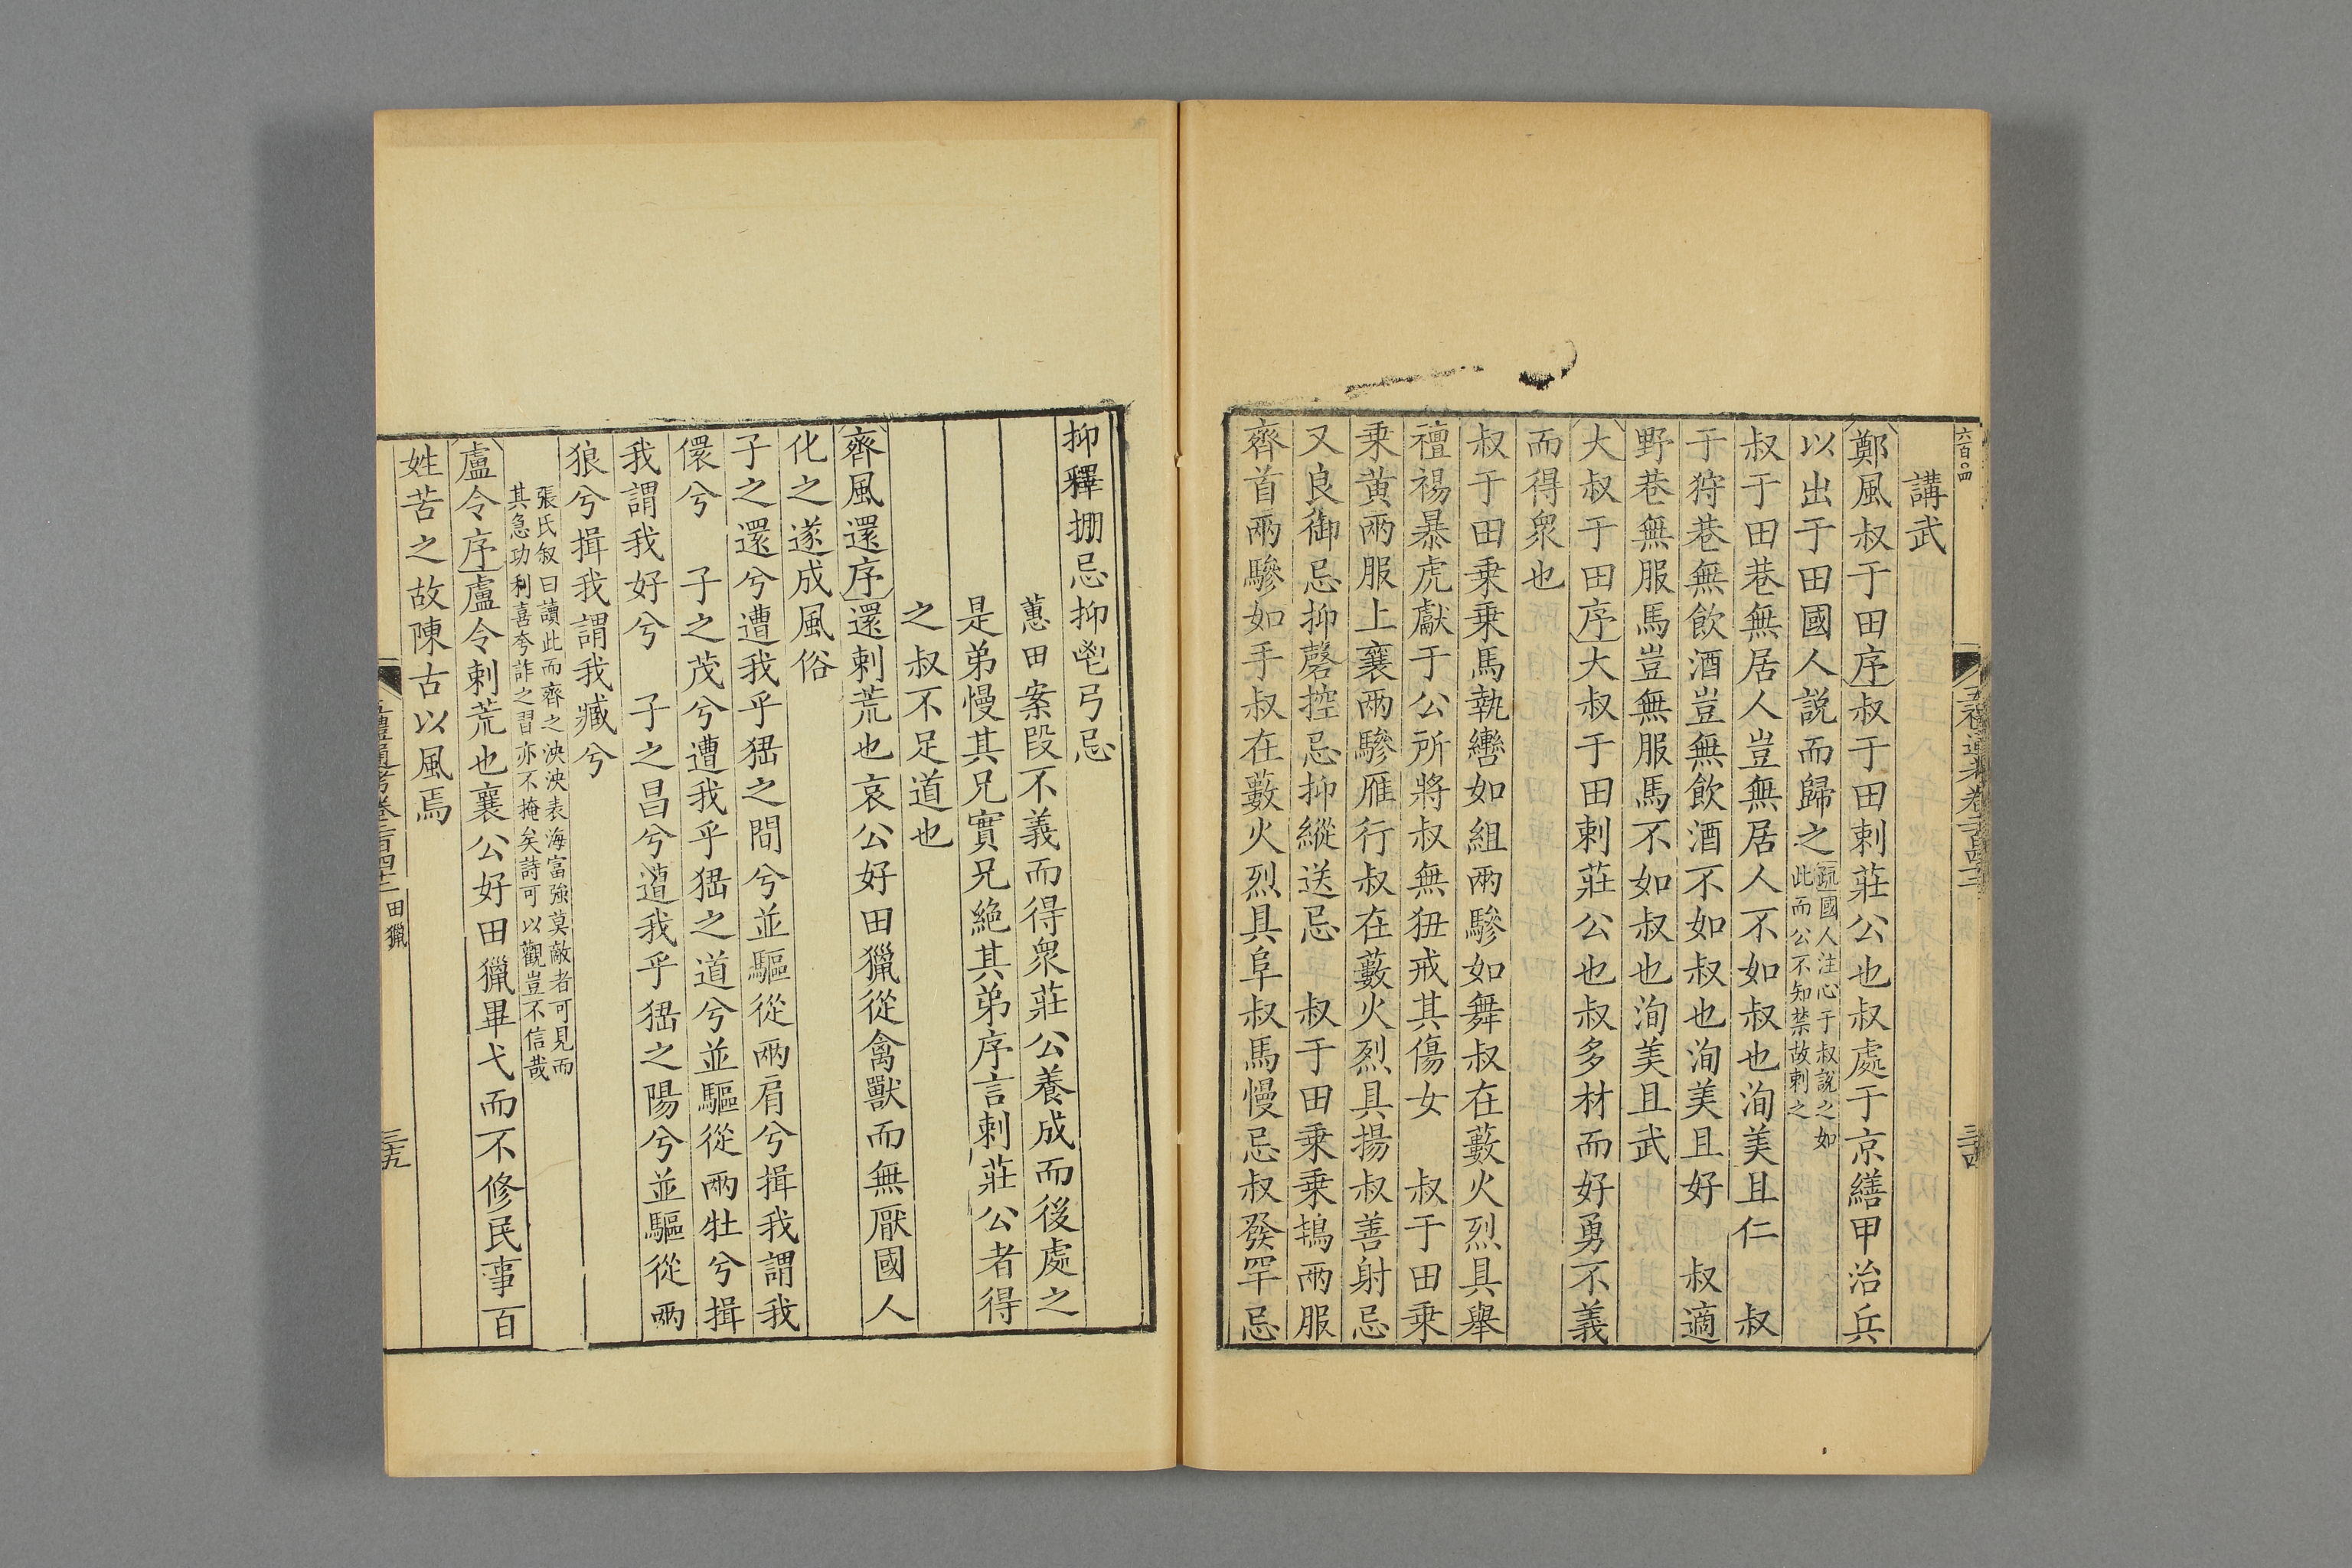 六百四
五禮通考卷二百四十二
三四
講武
鄭風叔于田序叔于田刺莊公也叔處于京繕甲治兵
以出于田國人說而歸之疏國人注心于叔說之如
此而公不知禁故刺之
叔于田巷無居人豈無居人不如叔也洵美且仁　叔
于狩巷無飲酒豈無飲酒不如叔也洵美且好　叔適
野巷無服馬豈無服馬不如叔也洵美且武
大叔于田序大叔于田刺莊公也叔多材而好勇不義
而得衆也
叔于田乗乗馬執轡如組兩驂如舞叔在藪火烈具舉
襢裼暴虎獻于公所將叔無狃戒其傷女　叔于田乗
乗黄兩服上襄兩驂雁行叔在藪火烈具揚叔善射忌
又良御忌抑磬控忌抑縱送忌　叔于田乗乗鴇兩服
齊首兩驂如手叔在藪火烈具阜叔馬慢忌叔發罕忌
抑釋掤忌抑鬯弓忌
蕙田案段不義而得衆莊公養成而後處之
是弟慢其兄實兄絶其弟序言刺莊公者得
之叔不足道也
齊風還序還刺荒也哀公好田獵從禽獸而無厭國人
化之遂成風俗
子之還兮遭我乎猺之間兮並驅從兩肩兮揖我謂我
儇兮　子之茂兮遭我乎猺之道兮並驅從兩牡兮揖
我謂我好兮　子之昌兮遭我乎猺之陽兮並驅從兩
狼兮揖我謂我臧兮
張氏叙曰讀此而齊之泱泱表海富強莫敵者可見而
其急功利喜夸詐之習亦不掩矣詩可以觀豈不信哉
盧令序盧令刺荒也襄公好田獵畢弋而不修民事百
姓苦之故陳古以風焉
五禮通考卷二百四十二　田獵
三五